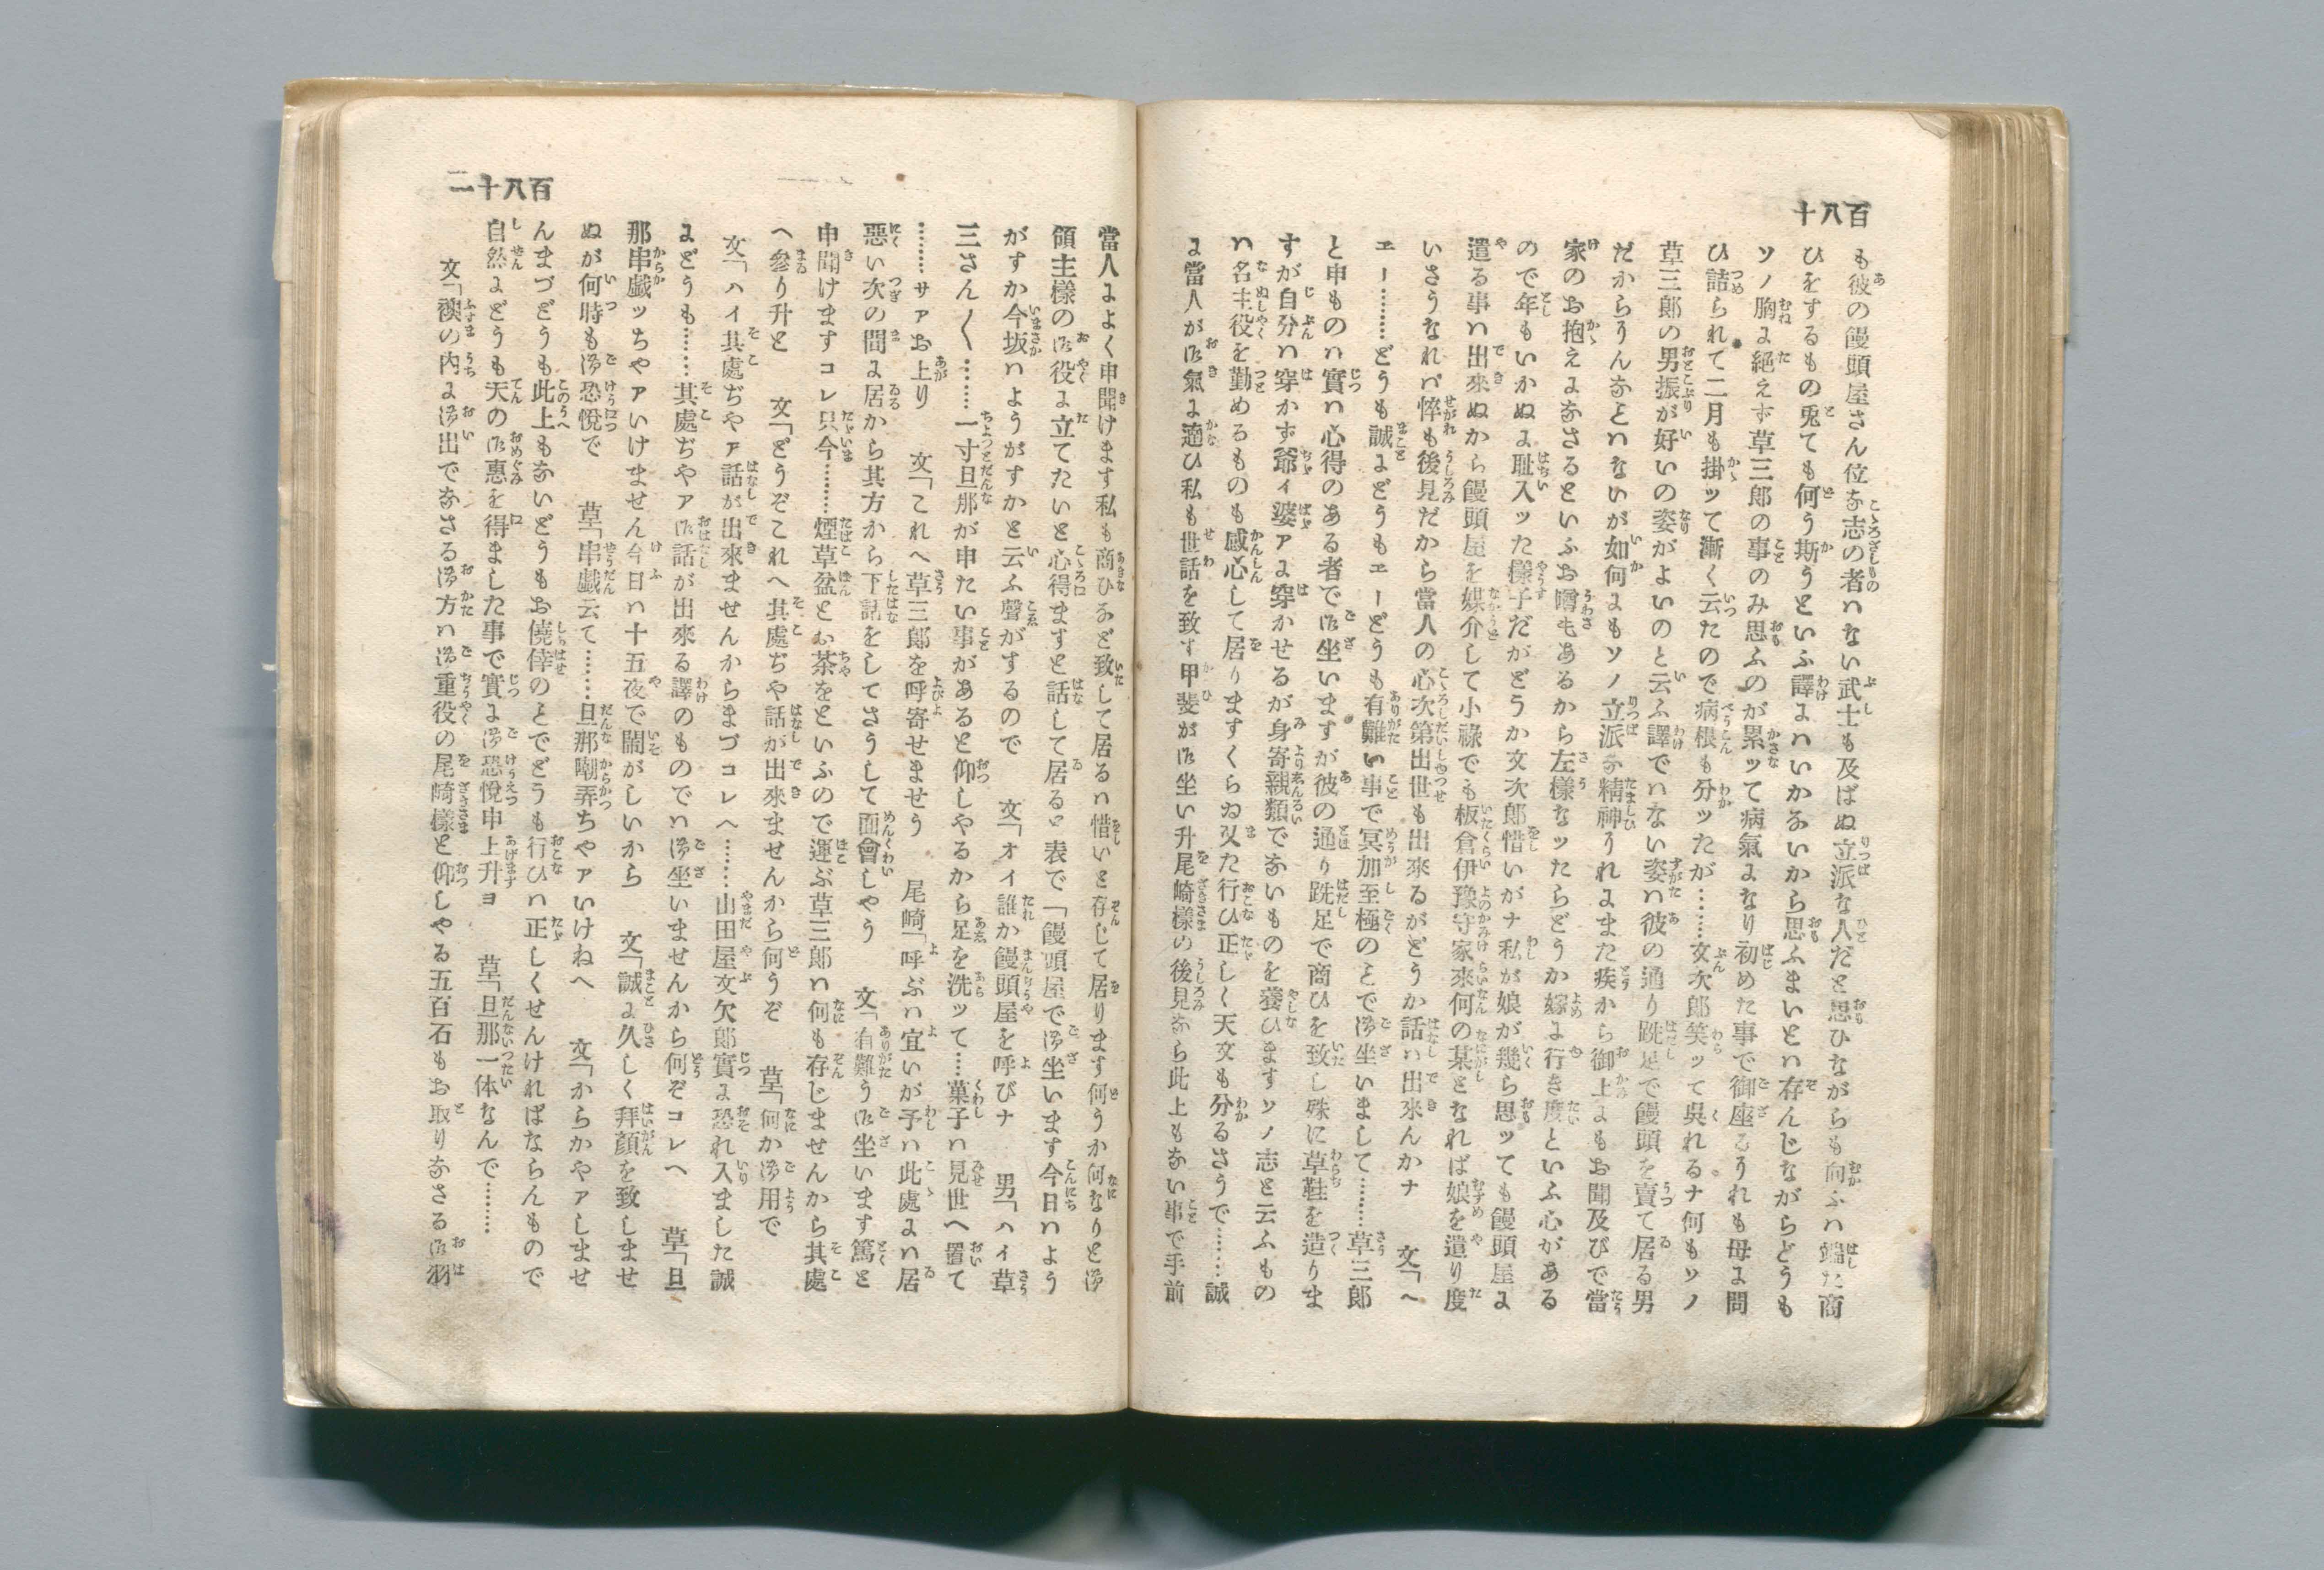 百八十
も彼の饅頭屋さん位な志の者ハない武士も及ばぬ立派な人だと思ひながらも向ふハ端た商
ひをするもの兎ても何う斯うといふ譯にハいかないから思ふまいとハ存んじながらどうも
ソノ胸に絶えず草三郎の事のみ思ふのが累ッて病氣になり初めた事で御座るうれも母に問
ひ詰られて二月も掛ッて漸く云たので病根も分ッたが……文次郎笑ッて呉れるナ何もソノ
草三郎の男振が好いの姿がよいのと云ふ譯でハない姿ハ彼の通り跣足で饅頭を賣て居る男
だからうんなとハないが如何にもソノ立派な精神うれにまた疾から御上にもお聞及びで當
家のお抱えになさるといふお噂もあるから左樣なッたらどうか嫁に行き度といふ心がある
ので年もいかぬに耻入ッた樣子だがどうか文次郎惜いがナ私が娘が幾ら思ッても饅頭屋に
遣る事ハ出來ぬから饅頭屋を媒介して小祿でも板倉伊豫守家來何の某となれば娘を遣り度
いさうなれバ悴も後見だから當人の心次第出世も出來るがどうか話ハ出來んかナ　文「ヘ
エー………どうも誠にどうもエーどうも有難い事で冥加至極のことで御坐いまして………草三郎
と申ものハ實ハ心得のある者で御坐いますが彼の通り跣足で商ひを致し殊に草鞋を造りま
すが自分ハ穿かず爺ィ婆アに穿かせるが身寄親類でないものを養ひますソノ志と云ふもの
ハ名主役を勤めるものも感心して居りますくらゐ又た行ひ正しく天文も分るさうで……誠
に當人が御氣に適ひ私も世話を致す甲斐が御坐い升尾崎樣の後見なら此上もない事で手前
百八十一
當人によく申聞けます私も商ひなど致して居るハ惜いと存じて居ります何うか何なりと御
領主樣の御役に立てたいと心得ますと話して居ると表で「饅頭屋で御坐います今日ハよう
がすか今坂ハようがすかと云ふ聲がするので　文「オイ誰か饅頭屋を呼びナ　男「ハイ草
三さん〱……一寸旦那が申たい事があると仰しやるから足を洗ッて…菓子ハ見世へ置て
……サアお上り　文「これへ草三郎を呼寄せませう　尾崎「呼ぶハ宜いが予ハ此處にハ居
惡い次の間に居るから其方から下話をしてさうして面會しやう　文「有難う御坐います篤と
申聞けますコレ只今……煙草盆とお茶をといふので運ぶ草三郎ハ何も存じませんから其處
へ參り升と　文「どうぞこれへ其處ぢや話が出來ませんから何うぞ　草「何か御用で
文「ハイ其處ぢやア話が出來ませんからまづコレへ……山田屋文次郎實に恐れ入ました誠
にどうも……其處ぢやア御話が出來る譯のものでハ御坐いませんから何ぞコレへ　草「旦
那串戯ッちやアいけません今日ハ十五夜で鬧がしいから　文「誠に久しく拜顔を致しませ
ぬが何時も御恐悅で　草「串戯云て……旦那嘲弄ちやアいけねへ　文「からかやアしませ
んまづどうも此上もないどうもお僥倖のことでどうも行ひハ正しくせんければならんもので
自然にどうも天の御惠を得ました事で實に御恐悅申上升ヨ　草「旦那一体なんで………
文「襖の内に御出でなさる御方ハ御重役の尾崎樣と仰しやる五百石もお取りなさる御羽